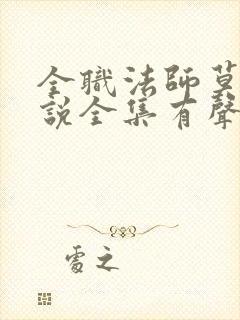 全職法師莫
說全集有聲
處之